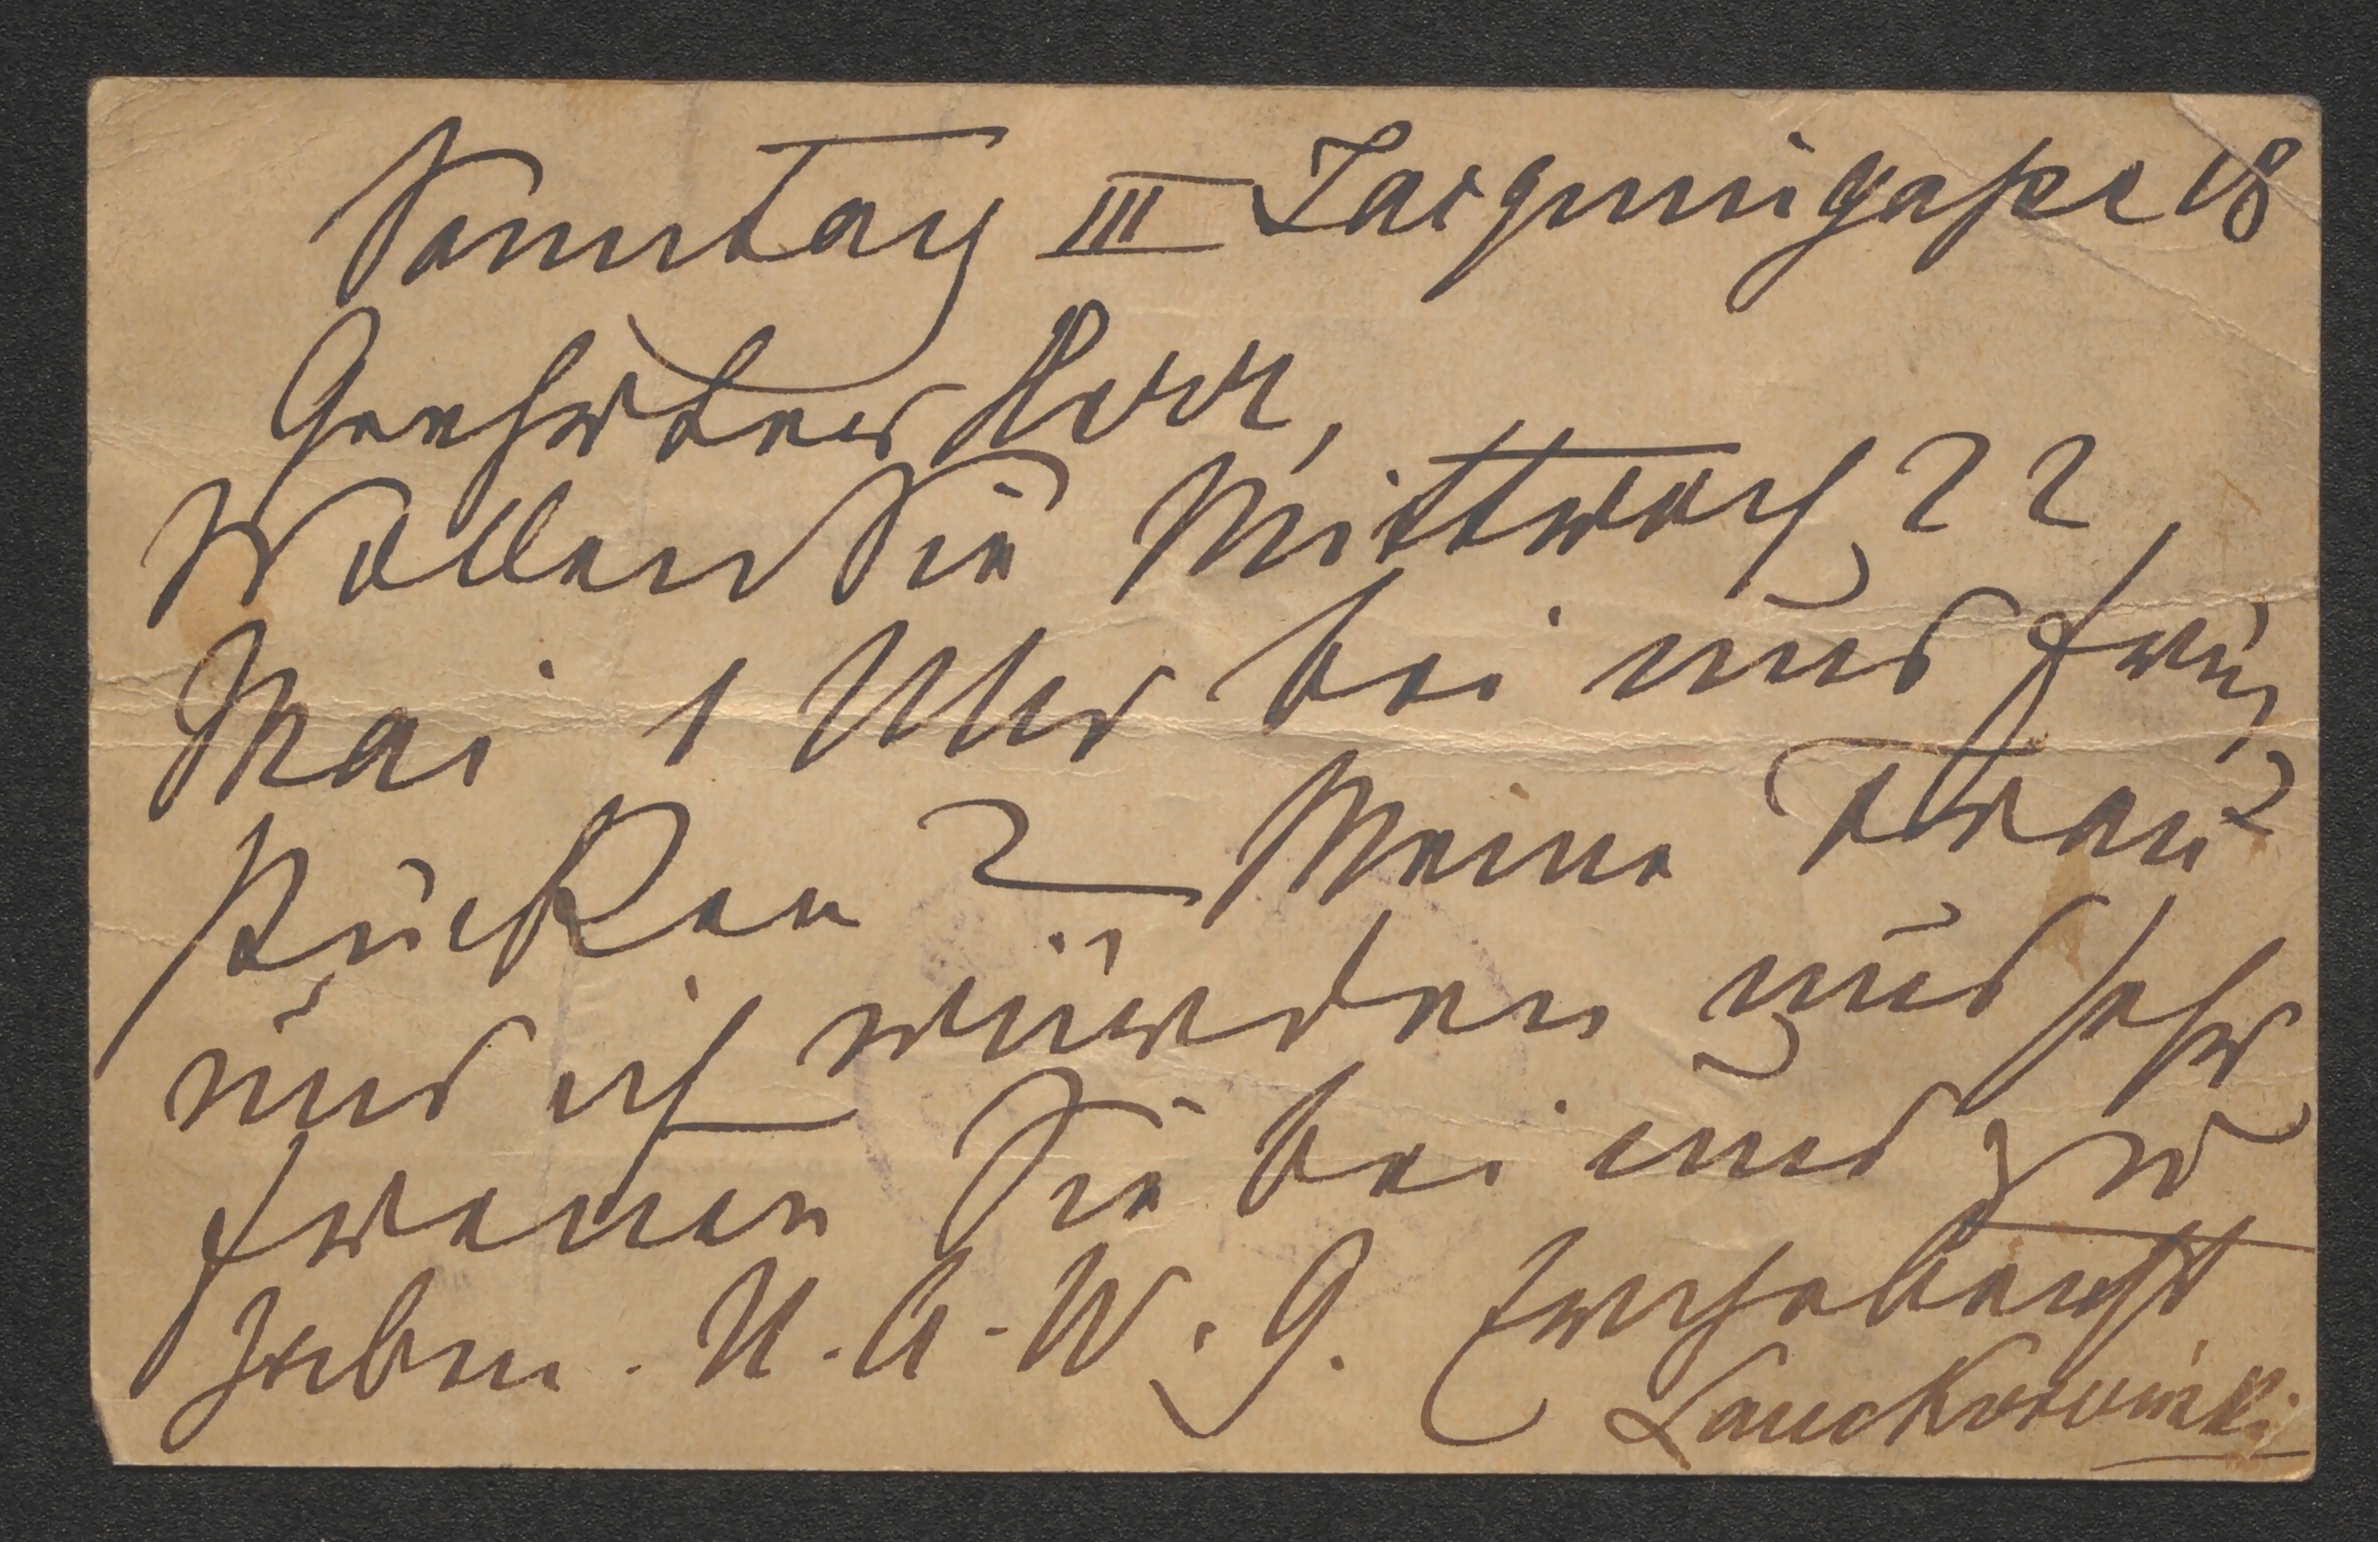 Sonntag III Jacquingasse 18
Geehrter Herr,
Wollen Sie Mittwoch 22
Mai 1 Uhr bei uns früh
stücken? Meine Frau
und ich würden uns sehr
freuen Sie bei uns zu
haben. U. A. W. g. Ergebenst
Lanckoroński